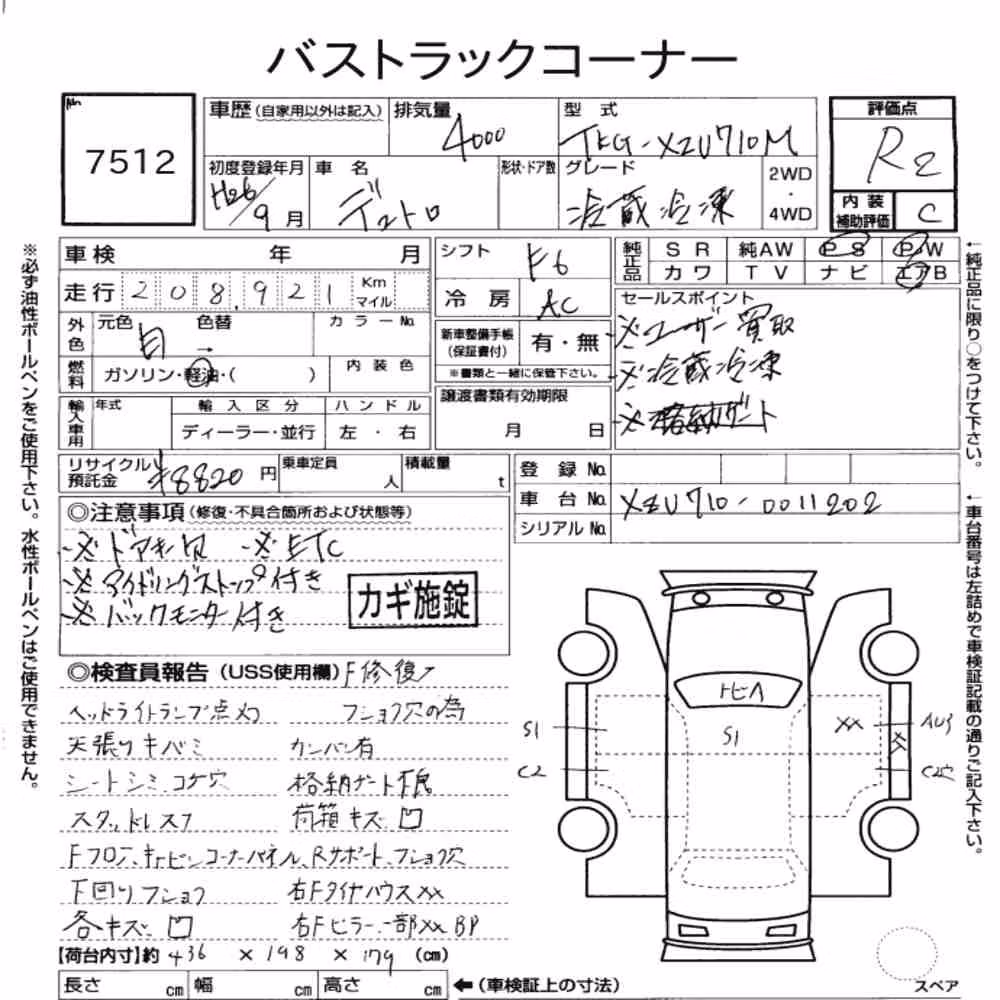 バストラックコーナー
No.
7512
車歴 (自家用以外は記入)
排気量
4000
型 式
TKG-XZU710M
評価点
R2
初度登録年月
H26/9月
車 名
デュトロ
形状・ドア数
グレード
冷蔵冷凍
2WD
・
4WD
内装補助評価
C
※必ず油性ボールペンをご使用下さい。水性ボールペンはご使用できません。
車検 年 月
走行 208,921 Km マイル
外色
元色 白 色替 →
カラーNo.
燃料
ガソリン・軽油・( )
内 装 色
輸入車用
年式
輸 入 区 分
ディーラー・並行
ハ ン ド ル
左 ・ 右
シフト
F6
冷 房
AC
新車整備手帳 (保証書付)
有・無
※書類と一緒に保管下さい。
譲渡書類有効期限
月 日
純正品
SR 純AW PS PW
カワ TV ナビ エアB
セールスポイント
※ユーザー買取
※冷蔵冷凍
※格納ゲート
←純正品に限り○をつけて下さい。
←車台番号は左詰めで車検証記載の通りご記入下さい。
リサイクル預託金 ¥8820 円
乗車定員 人
積載量 t
登 録 No.
車 台 No. XZU710-0011202
シリアルNo.
◎注意事項 (修復・不具合箇所および状態等)
※ドアキズ ※ETC
※アイドリングストップ付き
※バックモニター付き
カギ施錠
◎検査員報告 (USS使用欄) F修復
ヘッドライトランプ点灯 フショク穴の為
天張りキバミ カンバン有
シートシミ、コゲ穴 格納ゲート不良
スタッドレス7 荷箱キズ凹
Fフロア、キャビンコーナーパネル、Rサポート、フショク穴
下回りフショク 右FタイヤハウスXX
各キズ凹 右Fピラー一部XX BP
【荷台内寸】約 436 × 198 × 179 (cm)
長さ cm 幅 cm 高さ cm
←(車検証上の寸法)
トビA
S1
S1
XX
AU3
XX
C2
C2穴
スペア